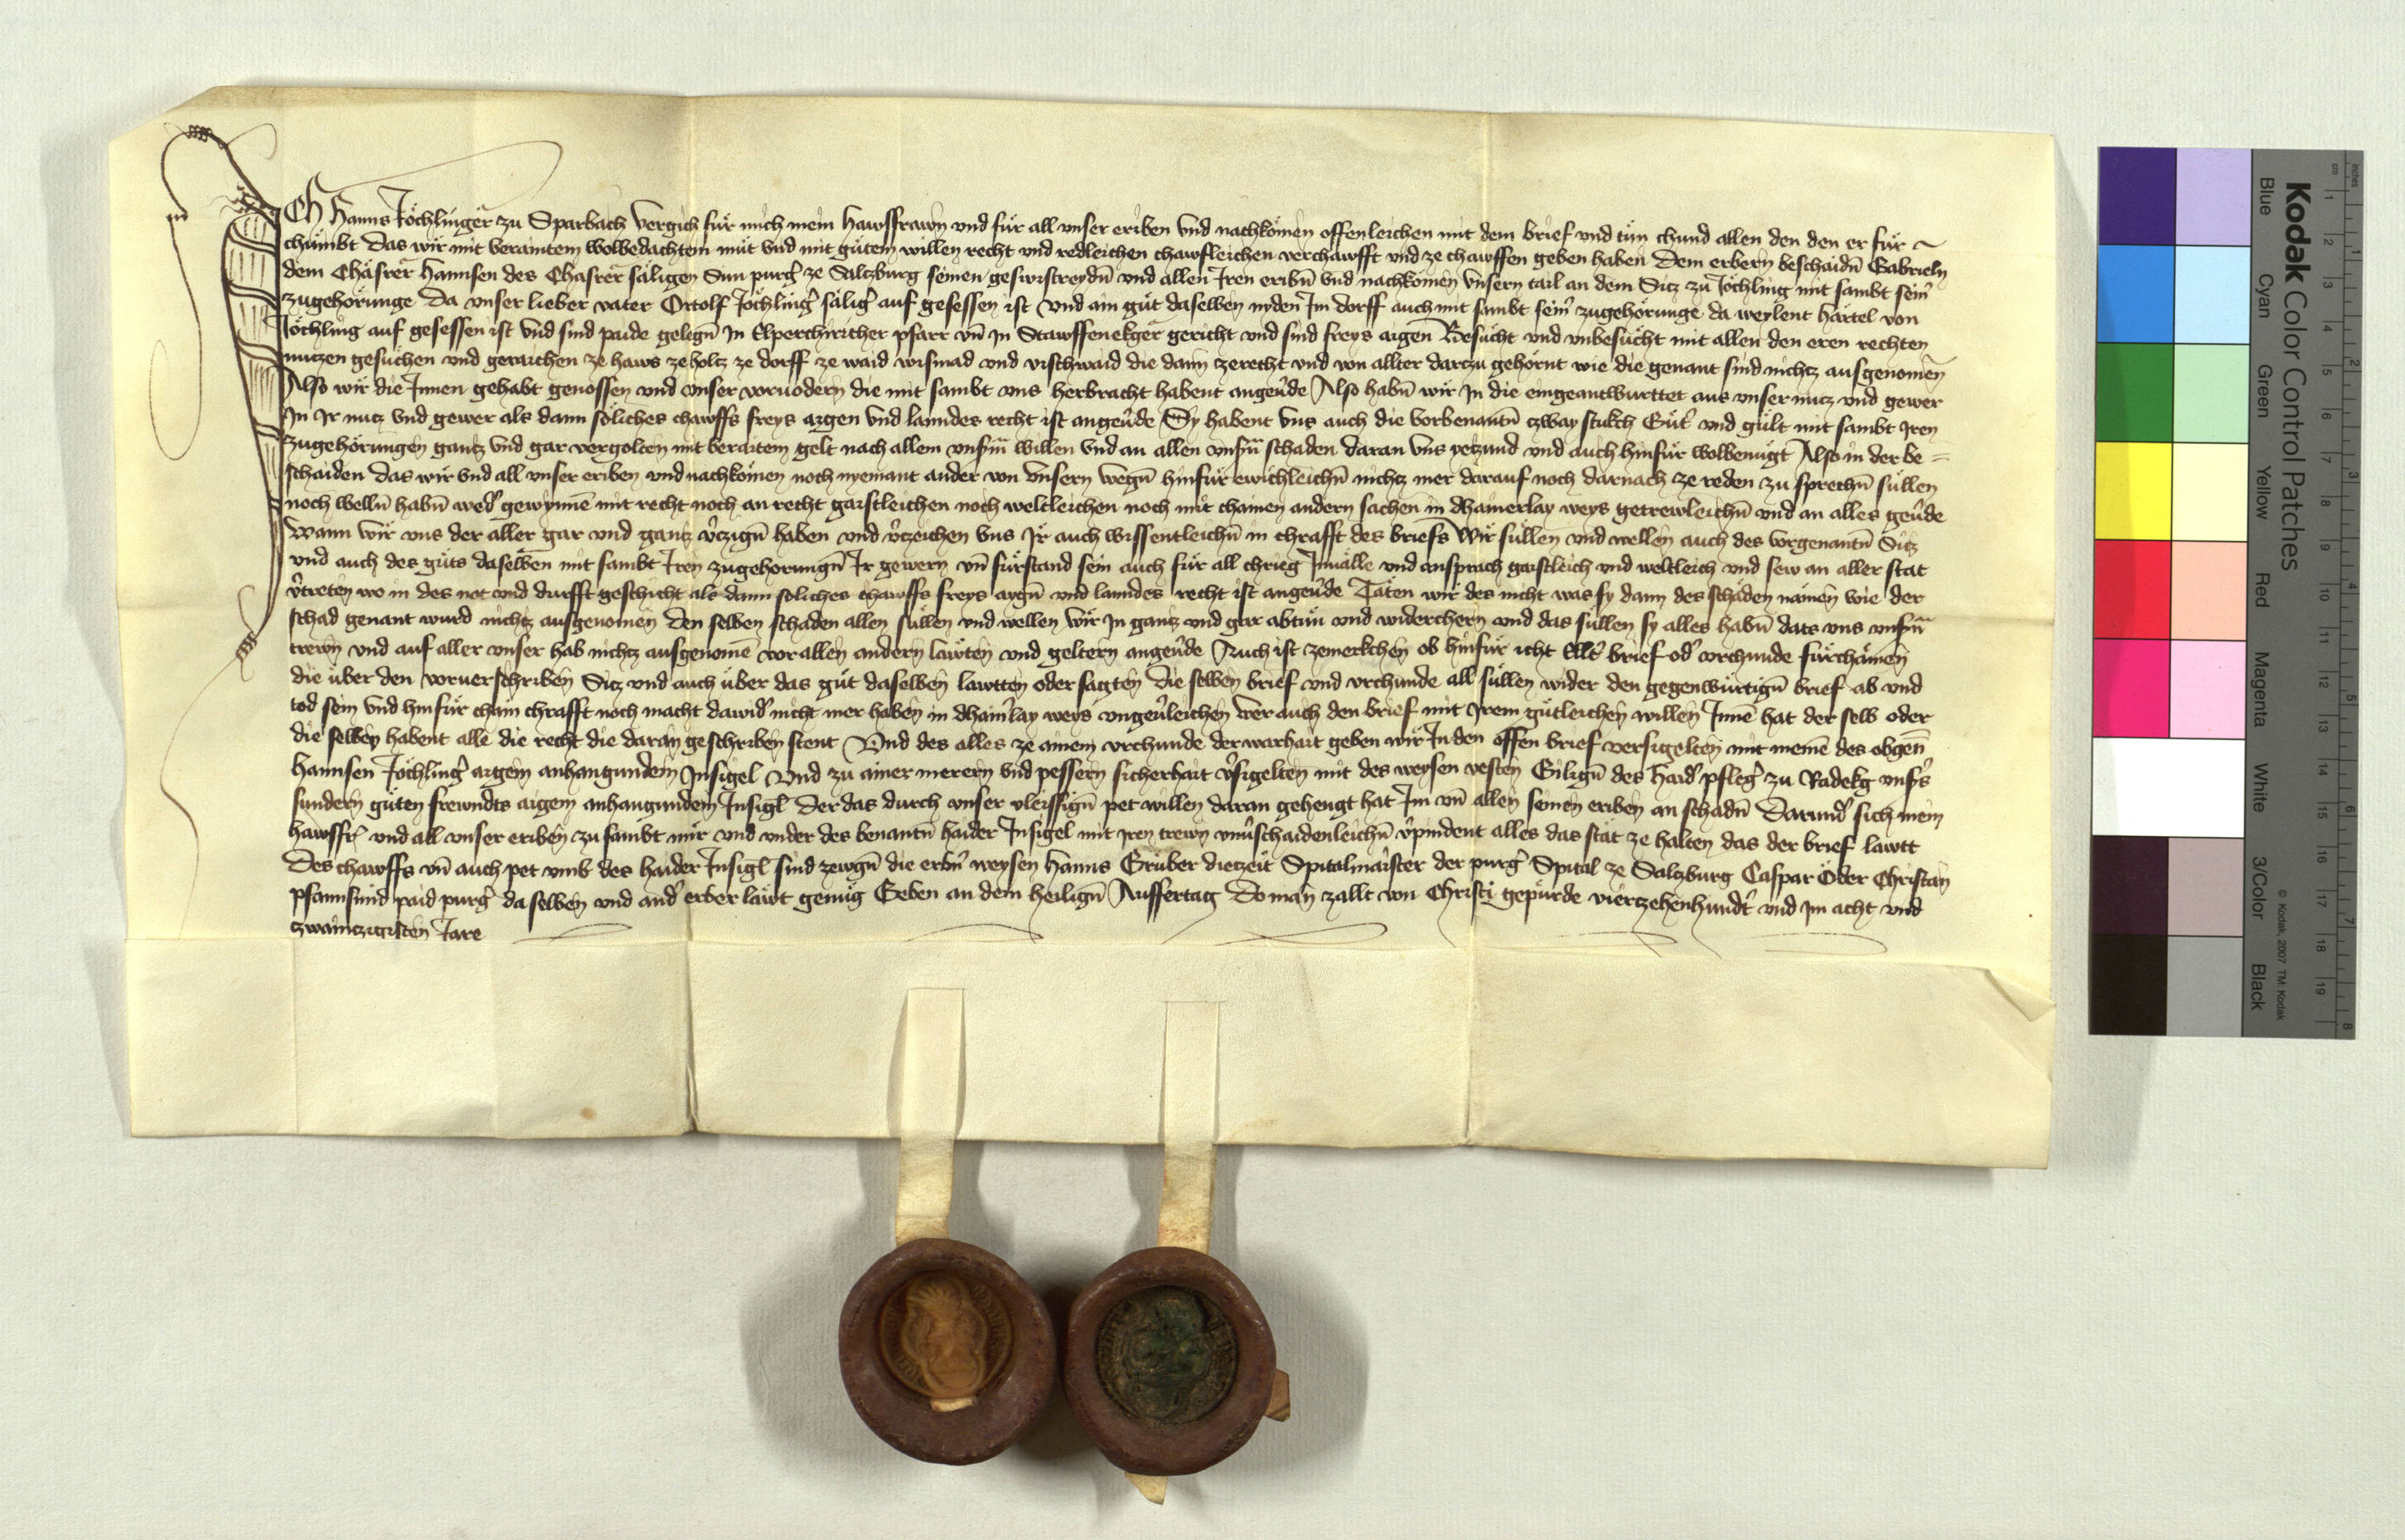 ICH Hanns Jöchlinger zu Sparbach vergich für mich mein hawsfrawn vnd für all vnser eriben vnd nachkömen offenleichen mit dem brief vnd tün chund allen den den er für
chümbt das wir mit beraittem wolbedachtem müt vnd mit gütem willen recht vnd redleichen chawfleichen verchawfft vnd ze chawffen geben haben dem erbern beschaidn̄ Gabrieln
dem Chäsrer Hannsen des Chasrer säligen Sun purg̉ ze Salczburg seinen geswistreydn̄ vnd allen Iren eribn̄ vnd nachkömen vnsern tail an dem Sicz zu Jöchling mit sambt sein̉
zugehörunge da vnser lieber vater Ortolf Jöchling̉ sälig̉ auf gesessen ist vnd ain güt daselben nyden Im dorff auch mit sambt sein̉ zugehörunge da weylent härtel von
Jöchling auf gesessen ist vnd sind paide gelegn̄ In Elperchiricher pfarr vn̄ in Stawffenekger gericht vnd sind freys aigen Besücht vnd vnbesücht mit allen den eren rechten
nutzen gesüchen vnd geraichen ze haws ze holtz ze dorff ze waid wismad vnd vischwaid die dann zerecht vnd von allter darczu gehörnt wie die genant sind nichcz ausgenomen̄
Also wir die Innen gehabt genossen vnd vnser voruodern die mit sambt vns herbracht habent angeu̇de Also habn̄ wir In die eingeantwurttet aus vnser nucz vnd gewer
In Ir nucz vnd gewer als dann söliches chawffs freys aigen vnd lanndes recht ist angeu̇de Sy habent vns auch die vorbenantn̄ czway stukch Güt̉ vnd gült mit sambt Iren
zugehörungen gantz vnd gar vergolten mit beraitem gelt nach allem vnsm̄ willen vnd an allen vnsm̄ schaden daran vns yetzund vnd auch hinfür wolbenügt Also in der be=
schaiden das wir vnd all vnser eriben vnd nachkömen noch nyemant ander von vnsern wegn̄ hinfür ewichleichn̄ nichcz mer darauf noch darnach ze reden zu sprechn̄ süllen
noch welln̄ habn̄ wed̉ gewynnē mit recht noch an recht gaistleichen noch weltleichen noch mit chainen andern sachen in dhainerlay weys getrewleichn̄ vnd an alles geu̇de
Wann wir vns der aller gar vnd gantz v̉czign̄ haben vnd v̉czeichen vns Ir auch wissentleichn̄ in chrafft des briefs Wir süllen vnd wellen auch des vorgenantn̄ Sitz
vnd auch des güts daselben mit sambt Iren zugehorungn̄ Ir gewern vn̄ fürstand sein auch für all chrieg Inuälle vnd ansprach gaistleich vnd weltleich vnd sew an aller stat
v̉treten wo in des not vnd durfft geschicht als dann soliches chawffs freys aygn̄ vnd lanndes recht ist angeu̇de Täten wir des nicht was sy dann des schäden nämen wie der
schad genant wurd nichcz ausgenomen den selben schaden allen süllen vnd wellen wir In gantz vnd gar abtün vnd widerchern vnd das süllen sy alles habn̄ dats vns vnsn̄
trewn vnd auf aller vnser hab nichcz ausgenomē vor allen andern läwten vnd geltern angeu̇de Auch ist zemerkchen ob hinfür icht Ellt̉ brief od̉ vrchunde fürchämen
die über den voruerschriben Sicz vnd auch über das güt daselben lawtten oder sagten Die selben brief vnd vrchunde all süllen wider den gegenwürtign̄ brief ab vnd
tod sein vnd hinfür chain chrafft noch macht dawid̉ nicht mer haben in dhain̉lay weys vngeu̇leichen wer auch den brief mit Irem gütleichen willen Innē hat der selb oder
die selben habent alle die recht die daran geschriben stent Vnd des alles ze ainem vrchunde der warhait geben wir In den offen brief versigelten mit meinē des obgen̄
Hannsen Jöchling̉ aigem anhangundem Insigel vnd zu ainer merern vnd pessern sicherhait v̉sigelten mit des weysen vesten Gilign̄ des Haid̉ pfleg̉ zu Radekg vnss̉
sundern güten frewndts aigem anhangundem Insigl Der das durch vnser vleissign̄ pet willen daran gehengt hat Im vn̄ allen seinen eriben an schadn̄ Darund̉ sich mein
hawsfr̄ vnd all vnser eriben zu sambt mir vnd vnder des benantn̄ haider Insigel mit Iren trewn vnu̇schaidenleichn̄ v̉pindent alles das stät ze halten das der brief lawtt
Des chawffs vn̄ auch pet vmb des haider Insigl sind zewgn̄ die erbn̉ weysen Hanns Grüber diezeit Spitalmaister der purg̉ Spital ze Salczburg Caspar Öder Christan
Pfannsmid paid purg̉ daselben vnd and̉ erber läwt genüg Geben an dem heilign̄ Auffertag Do man zallt von Christi gepürde vierczehenhundt̉ vnd Im acht vnd
czwainczigisten Jare
Kodak Color Control Patches
Blue Cyan Green Yellow Red Magenta White 3/Color Black
© Kodak, 2007 TM: Kodak
inches 1 2 3 4 5 6 7 8
cm 1 2 3 4 5 6 7 8 9 10 11 12 13 14 15 16 17 18 19